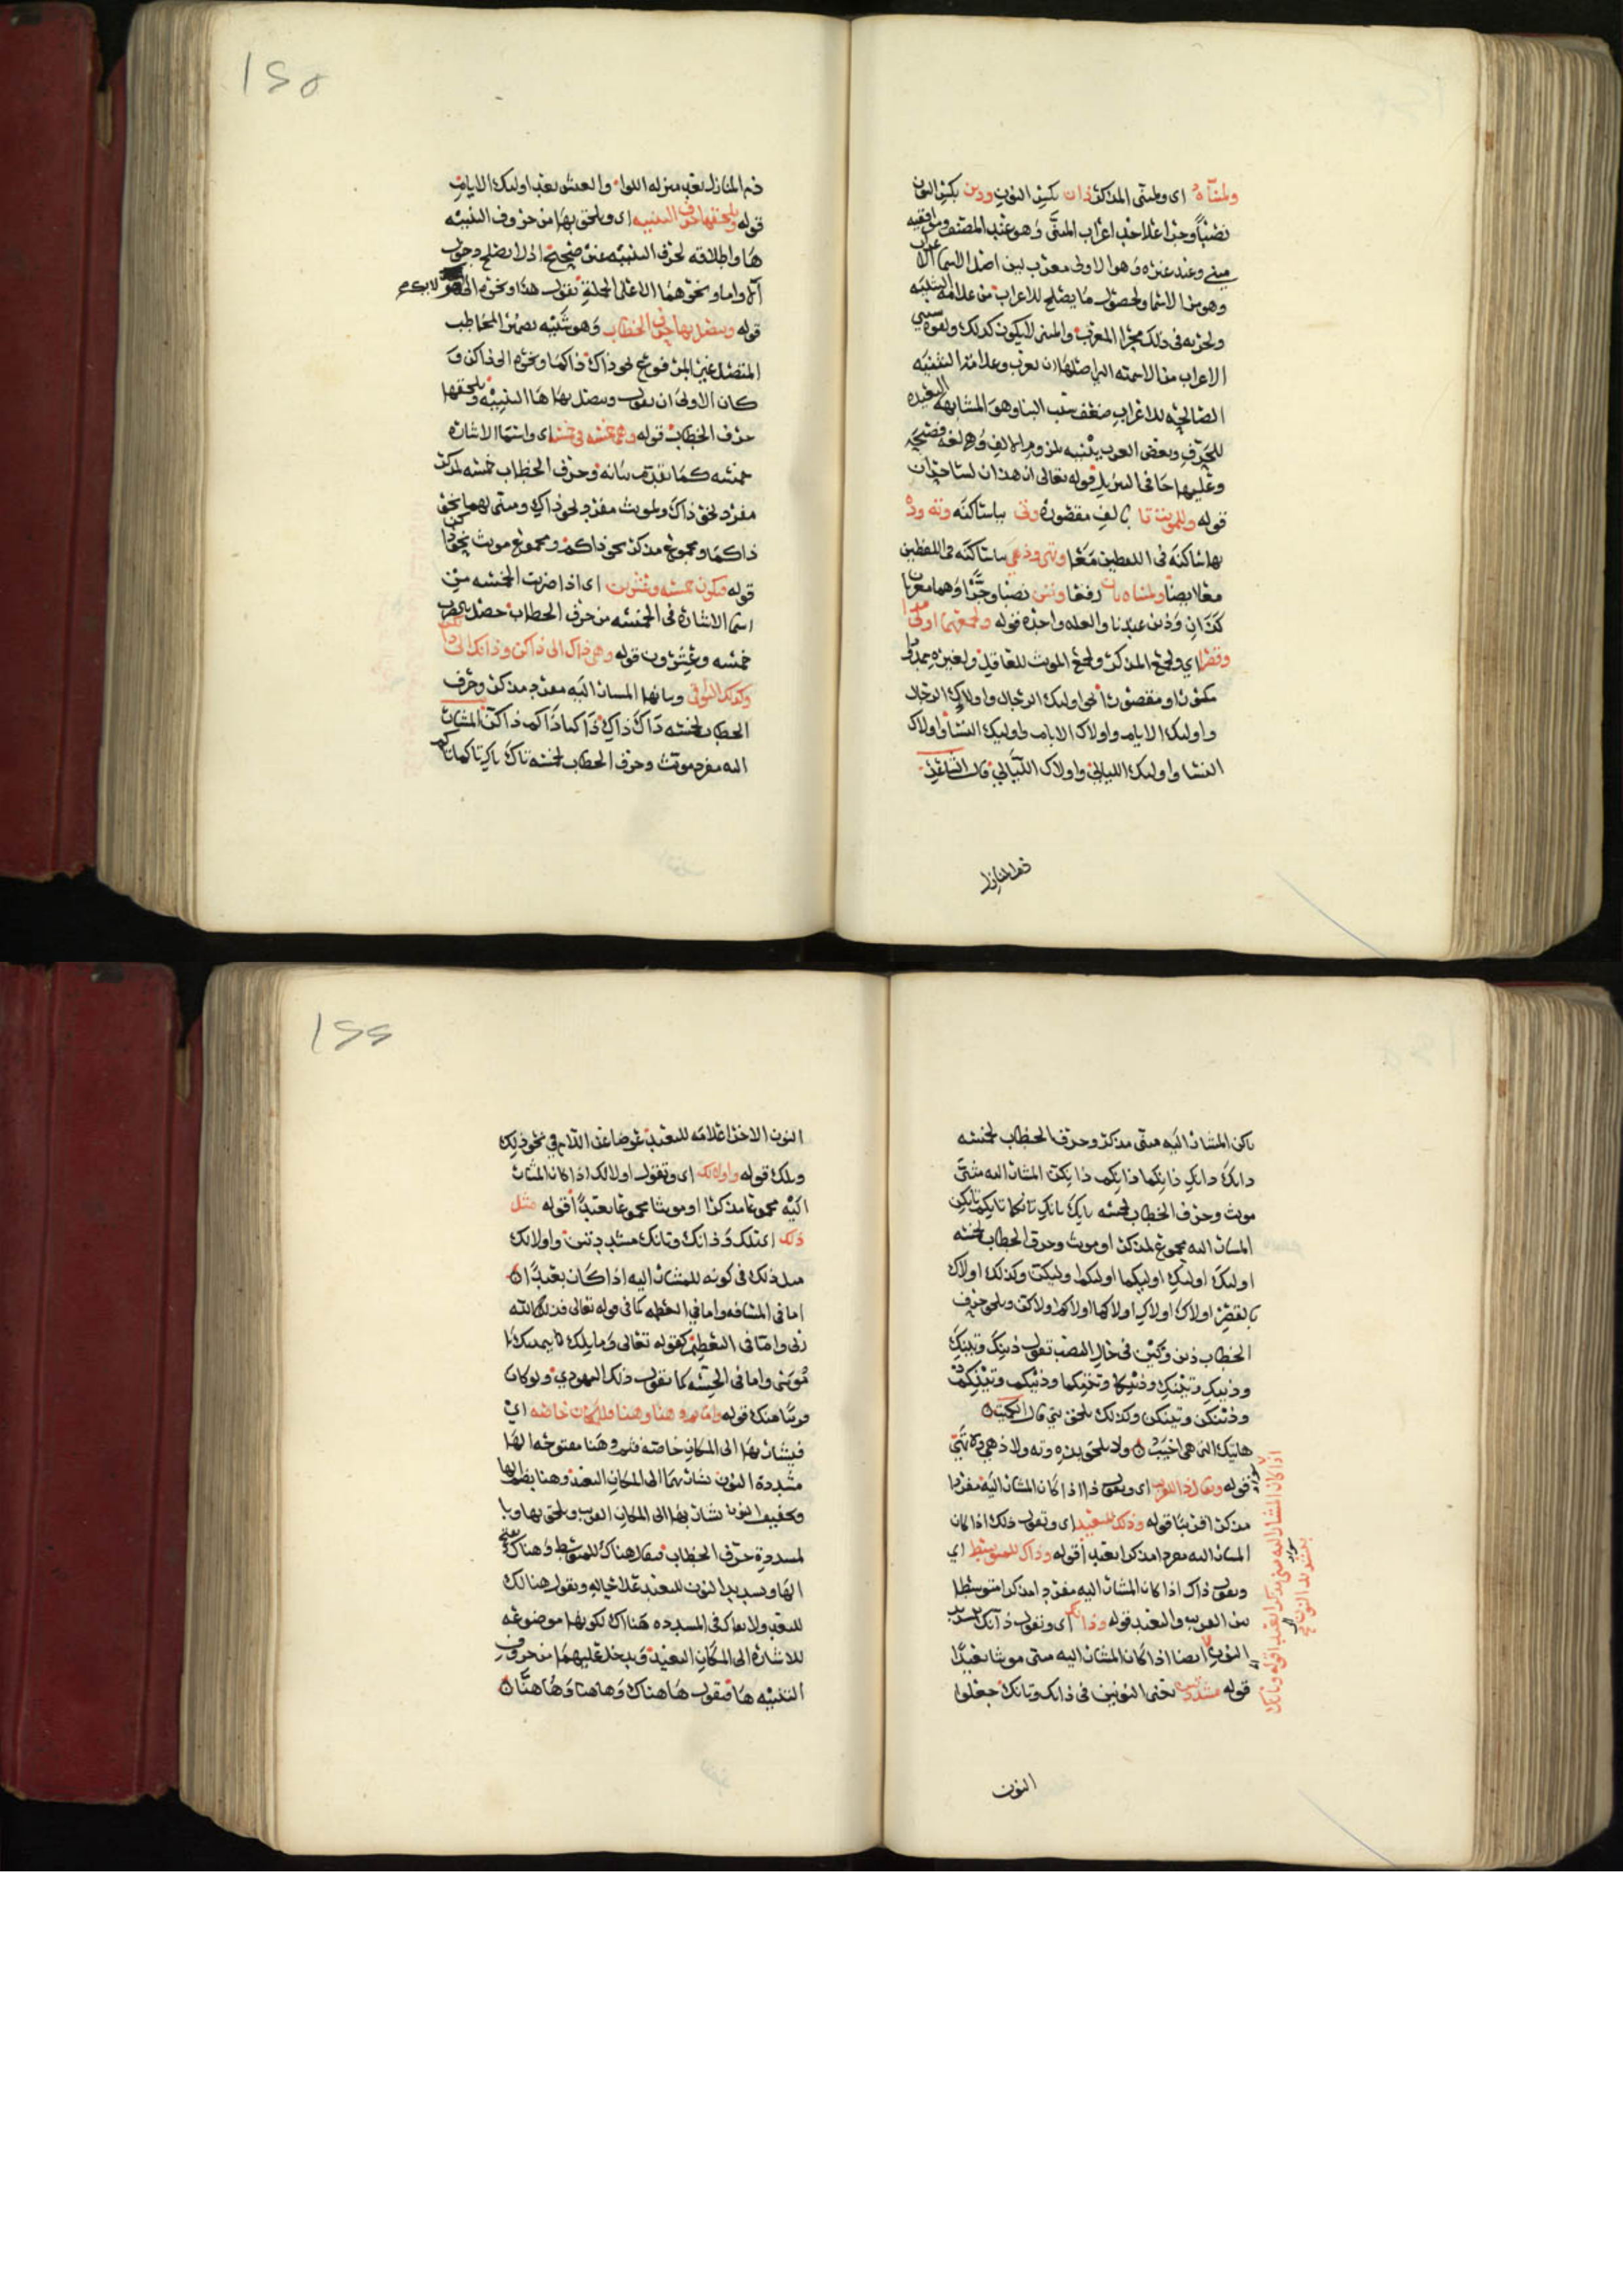 ولمثناه اي ولمثنى المذكر ذان بكسر النون وذين بكسر النون
نصباً وجرا على حد اعراب المثنى وهو عند المصنف وموافقيه
مبني وعند غيره وهو الاولى معرب لان اصل الاسما الاعراب
وهو من الاسما ولحصول ما يصلح للاعراب من علامة التثنيه
ولجريه في ذلك مجرا المعرب والمبني لا يكون كذلك ولقوة سببي
الاعراب من الاسميه التي اصلها ان تعرب وعلامة التثنيه
الصالحه للاعراب ضعف سبب البنا وهو المشابهه البعيده
للحرف وبعض العرب يثنيه بلزوم الالف وهي لغه فصيحه
وعليها جا في التنزيل قوله تعالى ان هذان لساحران
قوله وللمونث تا بالف مقصوره وتي بيا ساكنه وته وذه
بها ساكنه في اللفظين معا وتهي وذهي بيا ساكنه في اللفظين
معا ايضا ولمثناه تان رفعا وتين نصبا وجرا وهما معربان
كذان وذين عندنا والعله واحده قوله ولجمعهما اولى مدا
وقصرا اي ولجمع المذكر ولجمع المونث للعاقل ولغيره ممدودا
مكسورا او مقصورا نحو اوليك الرجال واولاك الرجال
واوليك الايام واولاك الايام واوليك النسا واولاك
النسا واوليك الليالي واولاك الليالي قال الشاعر
ذم المنازل
ذم المنازل بعد منزله اللوا والعيش بعد اوليك الايام
قوله ويلحقها حرف التنبيه اي ويلحق بها من حروف التنبيه
ها واطلاقه لحرف التنبيه غير صحيح اذ لا يصلح دخول
الا واما ونحوهما الا على الجملة تقول هذا ونحوه الى هولايكم
قوله ويتصل بها حرف الخطاب وهو شبيه بضمير المخاطب
المتصل غير المرفوع نحو ذاك ذاكما ونحوه الى ذاكن و
كان الاولى ان يقول ويتصل بها ها التنبيه ويلحقها
حرف الخطاب قوله وهي خمسه في خمسه اي واسما الاشاره
خمسه كما تقدم بيانه وحرف الخطاب خمسه لمذكر
مفرد نحو ذاك ولمونث مفرد نحو ذاك ومثنى لهما نحو
ذاكما ومجموع مذكر نحو ذاكم ومجموع مونث نحو ذاكن
قوله فيكون خمسه وعشرين اي اذا ضربت الخمسه من
اسما الاشاره في الخمسه من حرف الخطاب حصل بالضرب
خمسه وعشرون قوله وهي ذاك الى ذاكن وذانك الى ذانكن
وكذلك البواقي وبيانها المشار اليه مفرد مذكر وحرف
الخطاب لخمسه ذاك ذاك ذاكما ذاكم ذاكن المشار
اليه مفرد مونث وحرف الخطاب لخمسه تاك تاك تاكما تاكم
تاكن المشار اليه مثنى مذكر وحرف الخطاب لخمسه
ذانك ذانك ذانكما ذانكم ذانكن المشار اليه مثنى
مونث وحرف الخطاب لخمسه تانك تانك تانكما تانكم تانكن
المشار اليه مجموع لمذكر او مونث وحرف الخطاب لخمسه
اوليك اوليك اوليكما اوليكم اوليكن وكذلك اولاك
بالقصر اولاك اولاك اولاكما اولاكم اولاكن ويلحق حرف
الخطاب ذين وتين في حال النصب تقول ذينك وتينك
وذينك وتينك وذينكما وتينكما وذينكم وتينكم
وذينكن وتينكن وكذلك يلحق تي قال الكميت
هاتيك التي هي اخيب ولا يلحق بذه وته ولا ذهي ولا تهي
قوله ويقال ذا للقريب اي ويقول ذا اذا كان المشار اليه مفردا
مذكرا قريبا قوله وذلك للبعيد اي وتقول ذلك اذا كان
المشار اليه مفردا مذكرا بعيدا قوله وذاك للمتوسط اي
وتقول ذاك اذا كان المشار اليه مفردا مذكرا متوسطا
بين القريب والبعيد قوله وذانك اي وتقول ذانك بتشديد
النون ايضا اذا كان المشار اليه مثنى مونثا بعيدا
قوله مشددتين يعني النونين في ذانك وتانك جعلوا
اذا كان المشار اليه مثنى مذكرا بعيدا قوله وتانك
بتشديد النون
النون
النون الاخرا علامة للبعيد عوضا عن اللام في نحو ذلك
وتلك قوله واولالك اي وتقول اولالك اذا كان المشار
اليه مجموعا مذكرا او مونثا مجموعا بعيدا قوله مثل
ذلك اي تلك وذانك وتانك مشددتين واولالك
مثل ذلك في كونه للمشار اليه اذا كان بعيدا
اما في المسافه واما في الخطه كما في قوله تعالى فذلكم الله
ربي واما في التعظيم كقوله تعالى وما تلك بيمينك يا
موسى واما في الخسه كما تقول ذلك اليهودي ولو كان
قريبا منك قوله واما ثم وهنا وهنا فللمكان خاصه اي
فيشار بها الى المكان خاصه فثم وهنا مفتوحه الها
مشددة النون يشار بهما الى المكان البعيد وهنا بضم الها
وتخفيف النون يشار بها الى المكان القريب ويلحق بها وبا
لمشدده حرف الخطاب فيقال هناك للمتوسط وهناك بفتح
الها وتشديد النون للبعيد على حاله وتقول هنالك
للبعيد ولا يقال في المشدده هناك لكونها موضوعه
للاشاره الى المكان البعيد ويدخل عليهما من حروف
التنبيه ها فيقول ها هناك وهاهنا وهاهنا